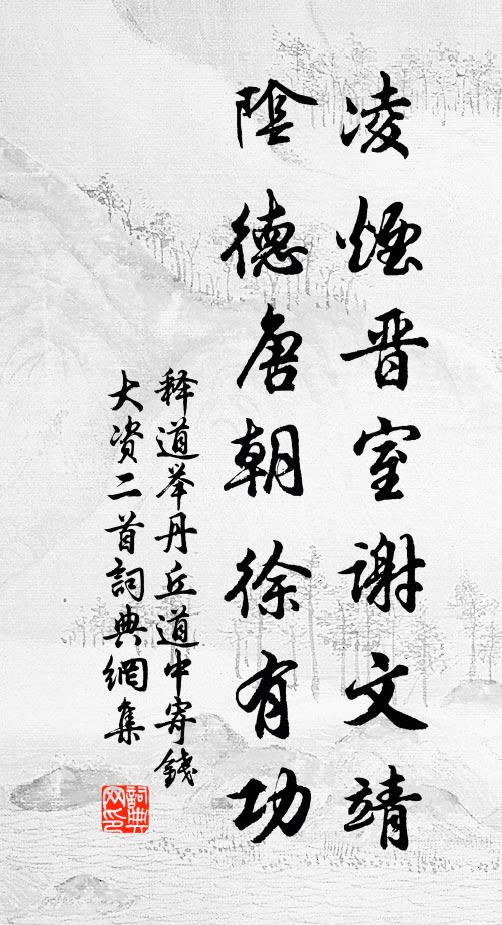 凌煙晋室谢文靖
陰德唐朝徐有功
释道举丹丘道中寄錢
大资二首詞典網集
詞典网印